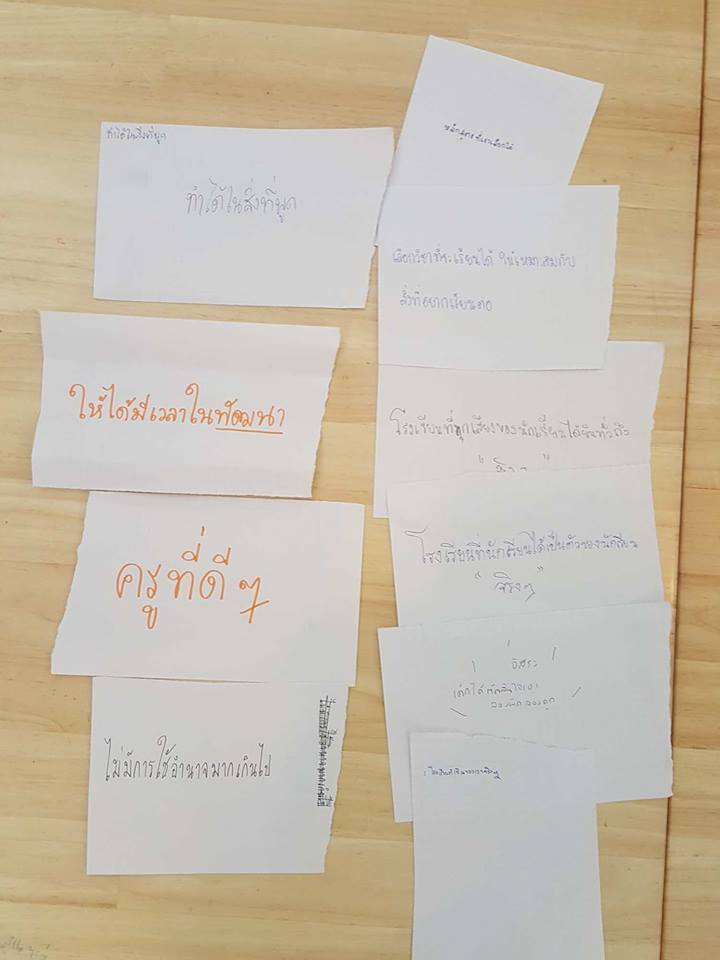 ทำได้ในสิ่งที่พูด
ทำได้ในสิ่งที่พูด
ให้ได้มีเวลาในพัฒนา
ครูที่ดี ๆ
ไม่มีการใช้อำนาจมากเกินไป
หลักสูตร
เลือกวิชาที่จะเรียนได้ ให้เหมาะสมกับ
สิ่งที่อยากเรียนต่อ
โรงเรียนที่ทุกเสียงของนักเรียนได้ยินทั่วถึง
โรงเรียนที่นักเรียนได้เป็นตัวของนักเรียน
"จริงๆ"
อิสระ
เด็กได้ตัดสินใจเอง
ลองผิด ลองถูก